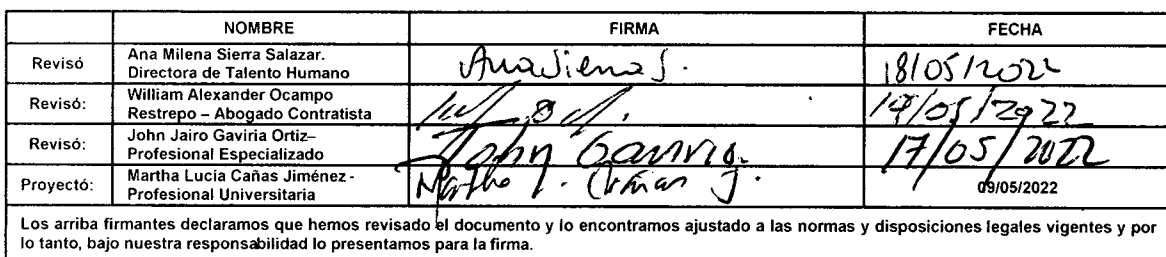 NOMBRE FIRMA FECHA
Revisó Ana Milena Sierra Salazar.
Directora de Talento Humano AnaSierra S. 18/05/2022
Revisó: William Alexander Ocampo
Restrepo – Abogado Contratista /05/2022
Revisó: John Jairo Gaviria Ortiz–
Profesional Especializado John Gaviria. 17/05/2022
Proyectó: Martha Lucía Cañas Jiménez -
Profesional Universitaria Martha L. Cañas J. 09/05/2022
Los arriba firmantes declaramos que hemos revisado el documento y lo encontramos ajustado a las normas y disposiciones legales vigentes y por
lo tanto, bajo nuestra responsabilidad lo presentamos para la firma.